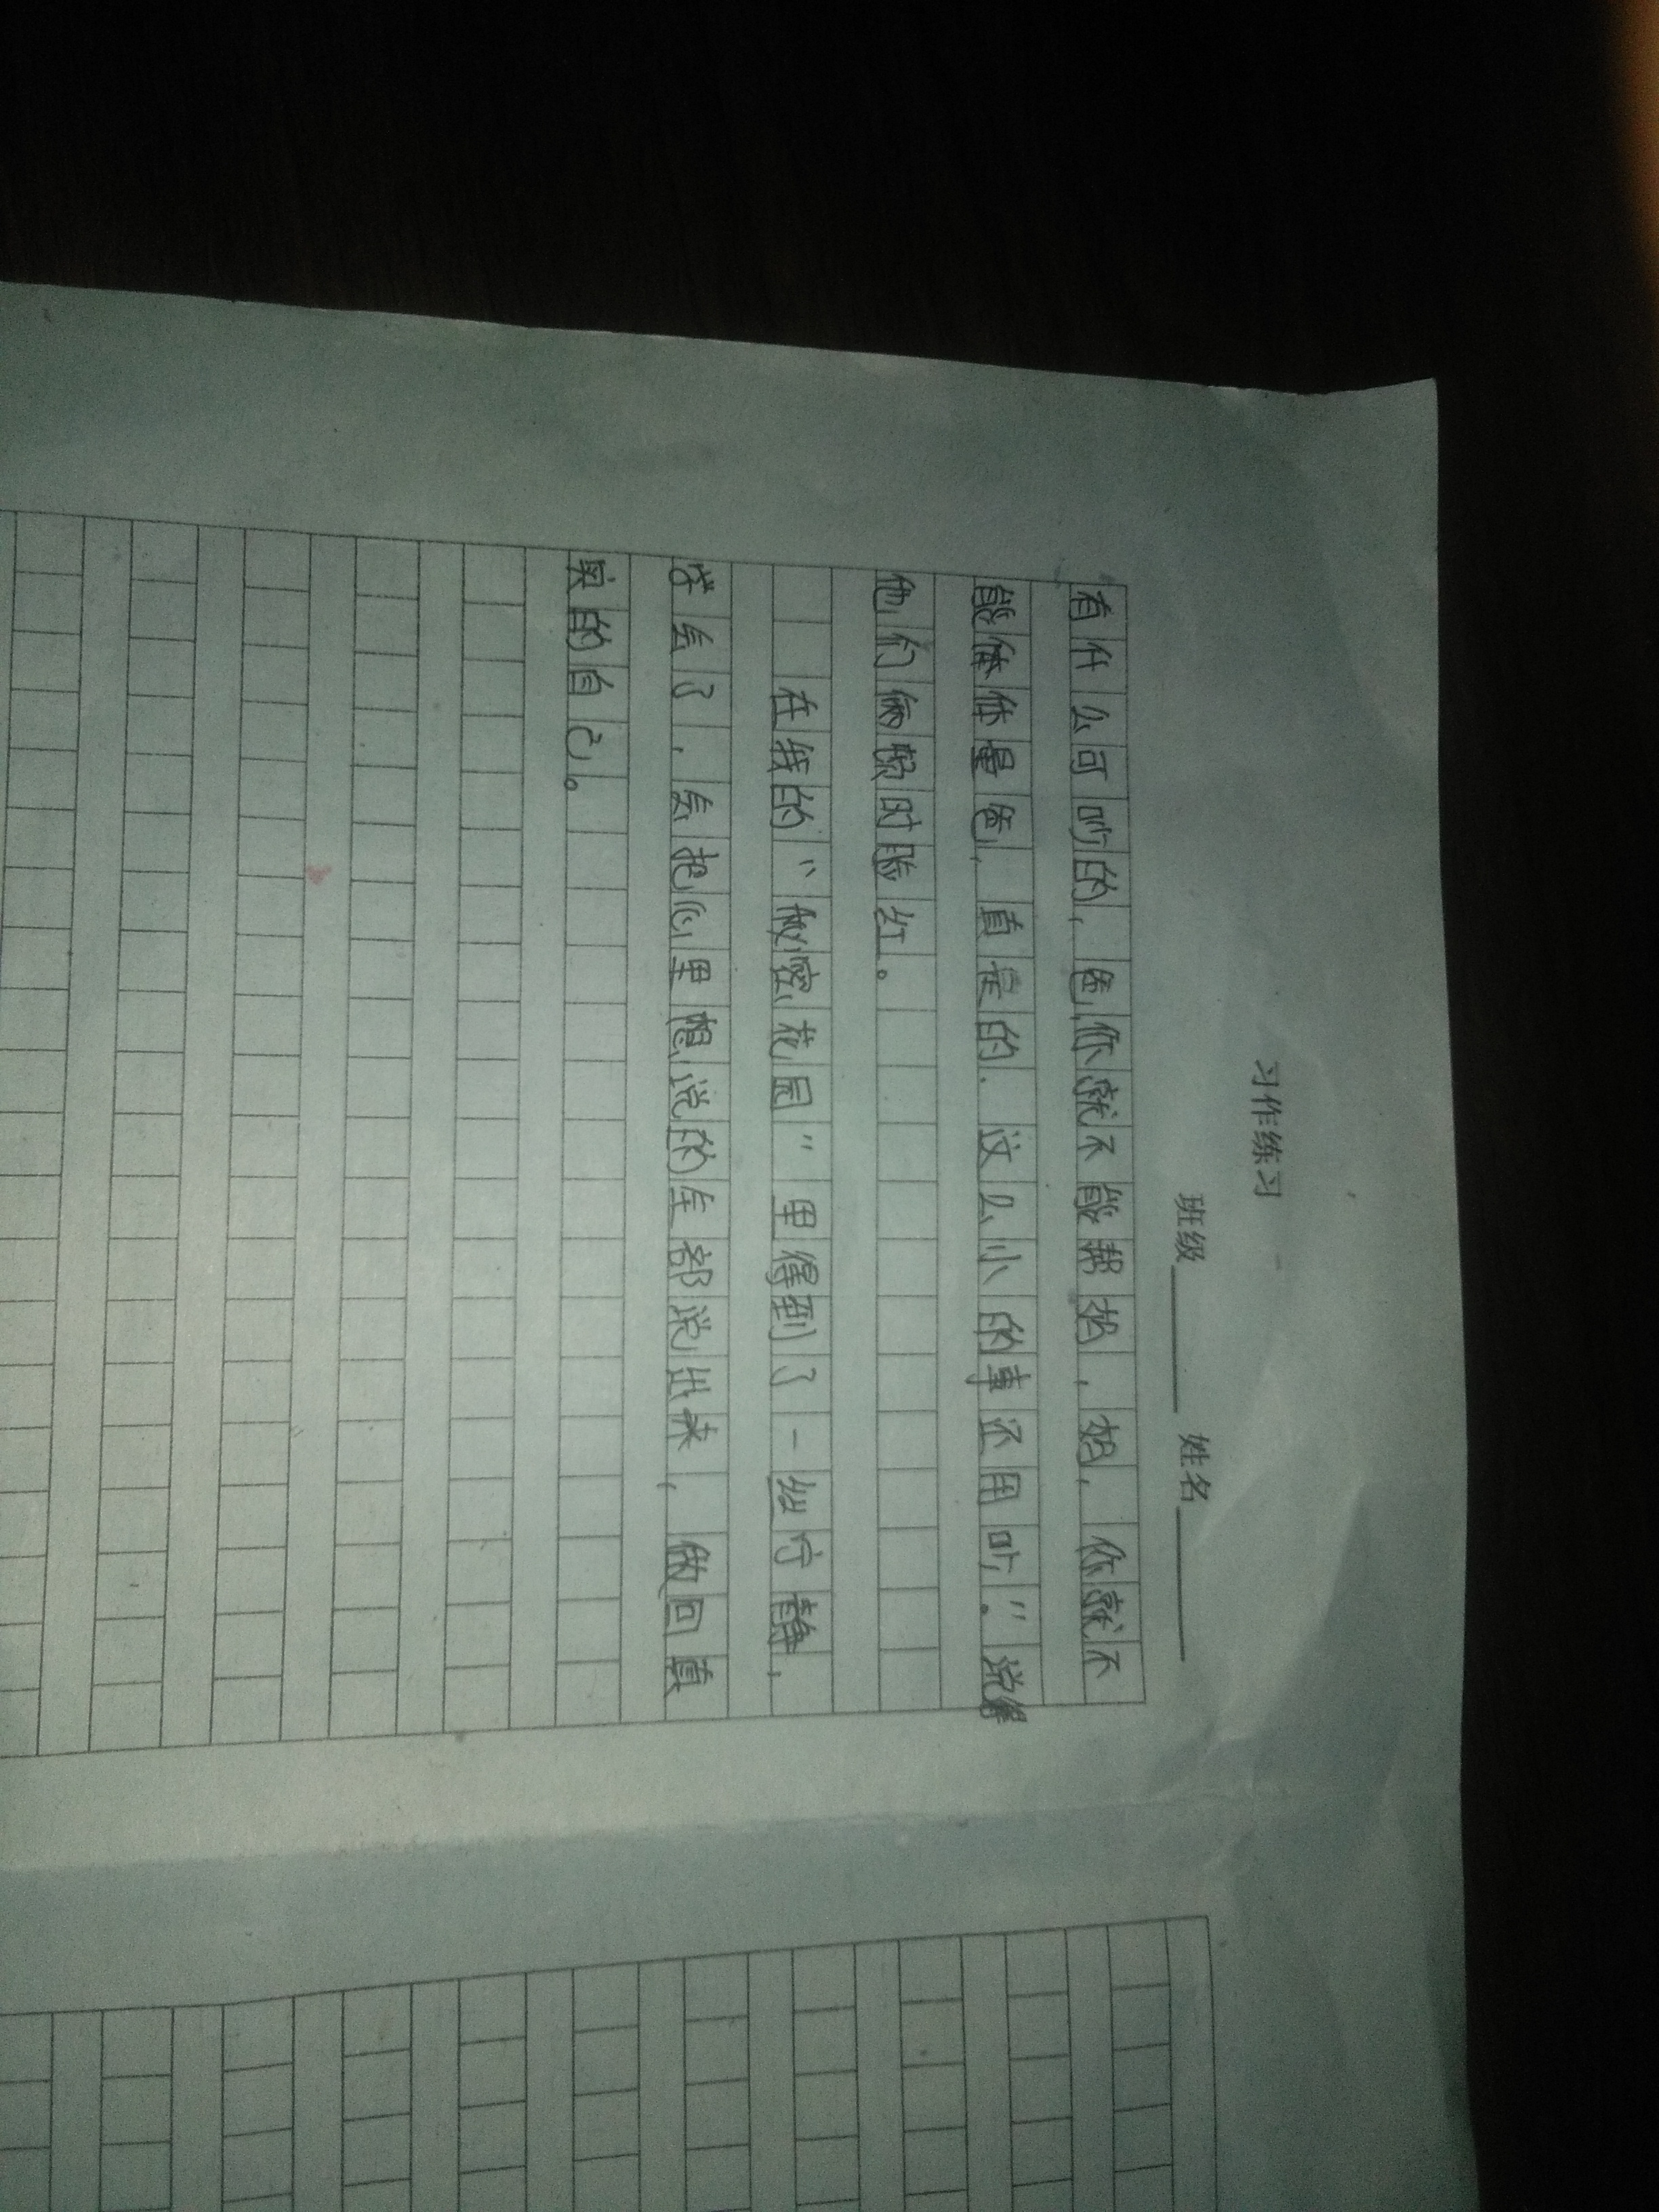 习作练习
班级 姓名
有什么可吵的，爸，你就不能帮妈，妈，你就不
能体体量爸，真是的．这么小的事还用吵。”说得
他们俩顿时脸红。
在我的“秘密花园”里得到了一丝宁静，
学会了，会把心里想说的全部说出来，做回真
实的自己。